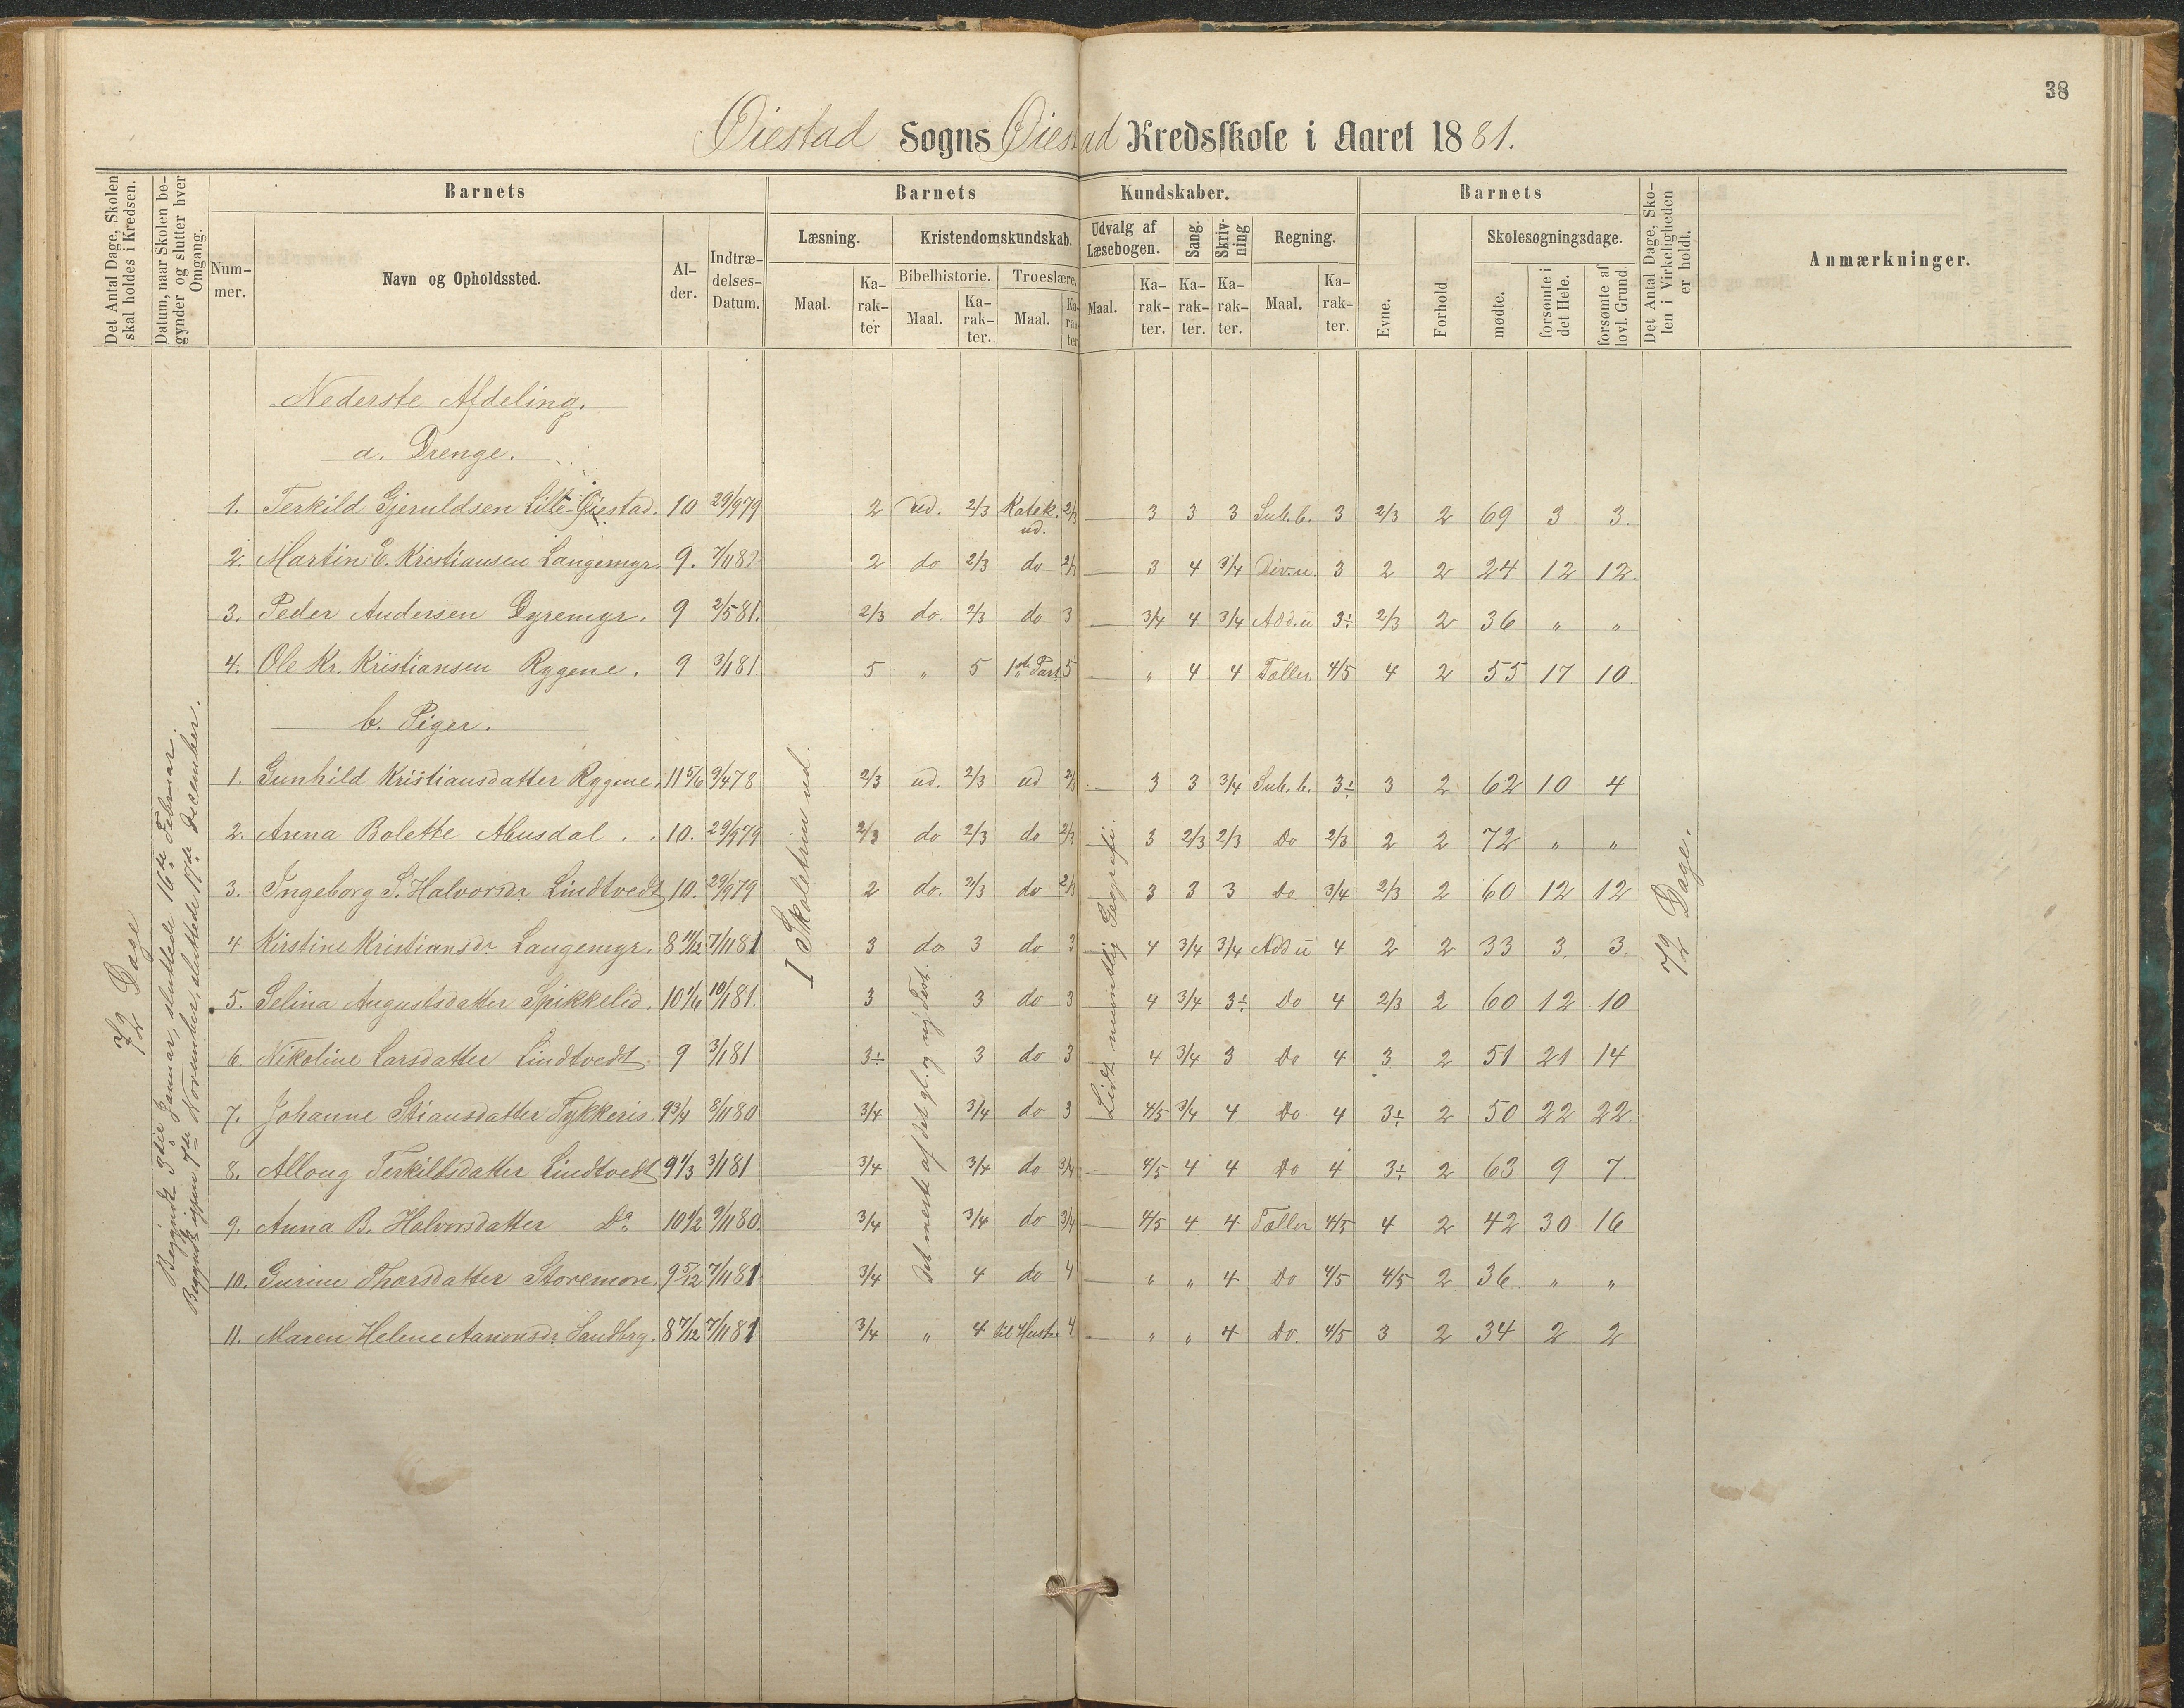 38
Øiestad Sogns Øiestad Kredsskole i Aaret 1881.
Det Antal Dage, Skolen skal holdes i Kredsen.
Datum, naar Skolen begynder og slutter hver Omgang.
Barnets
Barnets Kundskaber.
Barnets
Det Antal Dage, Skolen i Virkeligheden er holdt.
Anmærkninger.
Nummer.
Navn og Opholdssted.
Alder.
Indtrædelses-Datum.
Læsning.
Kristendomskundskab.
Udvalg af Læsebogen.
Sang.
Skrivning
Regning.
Evne.
Forhold
Skolesøgningsdage.
Bibelhistorie.
Troeslære.
Maal. Karakter
Maal. Karakter.
Maal. Karakter
Maal. Karakter.
Karakter.
Karakter.
Maal. Karakter.
mødte.
forsømte i det Hele.
forsømte af lovl. Grund.
72 Dage
Begyndt 3die Januar, sluttede 16de Februar.
Begyndt igjen 7de November, sluttede 17de December.
I Skoletrin ud.
Det meste af det gl. og ny Test.
Lidt mundtlig Geografi.
72 Dage.
Nederste Afdeling.
a. Drenge.
1. Terkild Gjeruldsen Lille-Øiestad. 10 29/9 79 2 ud. 2/3 Katek. ud. 2/3 — 3 3 3 Sub. b. 3 2/3 2 69 3 3.
2. Martin E. Kristiansen Langemyr. 9. 7/11 81 2 do 2/3 do 2/3 — 3 4 3/4 Div. u. 3 2 2 24 12 12.
3. Peder Andersen Dyremyr. 9 2/5 81. 2/3 do. 2/3 do 3 — 3/4 4 3/4 Add. u 3÷ 2/3 2 36 " "
4. Ole Kr. Kristiansen Rygene. 9 3/1 81. 5 " 5 1ste Part 5 — " 4 4 Tæller 4/5 4 2 55 17 10.
b. Piger.
1. Gunhild Kristiansdatter Rygene. 11 5/6 9/4 78 2/3 ud. 2/3 ud 2/3 — 3 3 3/4 Sub. b. 3÷ 3 2 62 10 4
2. Anna Bolette Abusdal. 10. 29/9 79 2/3 do 2/3 do 2/3 — 3 2/3 2/3 Do 2/3 2 2 72 " "
3. Ingeborg S. Halvorsdr. Lindtvedt 10. 29/9 79 2 do. 2/3 do 2/3 — 3 3 3 Do 3/4 2/3 2 60 12 12
4 Kirstine Kristiansdr. Langemyr. 8 11/12 7/11 81 3 do 3 do 3 — 4 3/4 3/4 Add u 4 2 2 33 3. 3.
5. Selina Augustsdatter Spikkelid. 10 1/6 10/1 81. 3 3 do 3 — 4 3/4 3÷ Do 4 2/3 2 60 12 10
6. Nikoline Larsdatter Lindtvedt 9 3/1 81 3÷ 3 do 3 — 4 3/4 3 Do 4 3 2 51 21 14
7. Johanne Stiansdatter Tykkeris. 9 3/4 8/11 80 3/4 3/4 do 3 4/5 3/4 4 Do 4 3÷ 2 50 22 22.
8. Alloug Terkildsdatter Lindtvedt 9 1/3 3/1 81 3/4 3/4 do 3/4 — 4/5 4 4 Do 4 3÷ 2 63 9 7
9. Anna B. Halvorsdatter Do 10 1/2 9/11 80. 3/4 3/4 do 3/4 — 4/5 4 4 Tæller 4/5 4 2 42 30 16
10. Gurine Thorsdatter Storemon. 9 5/12 7/11 81 3/4 4 do 4 — " " 4 Do 4/5 4/5 2 36 " "
11. Maren Helene Aanonsdr. Sandbrg. 8 7/12 7/11 81 3/4 " 4 til Hustav. 4 — " " 4 Do. 4/5 3 2 34 2 2